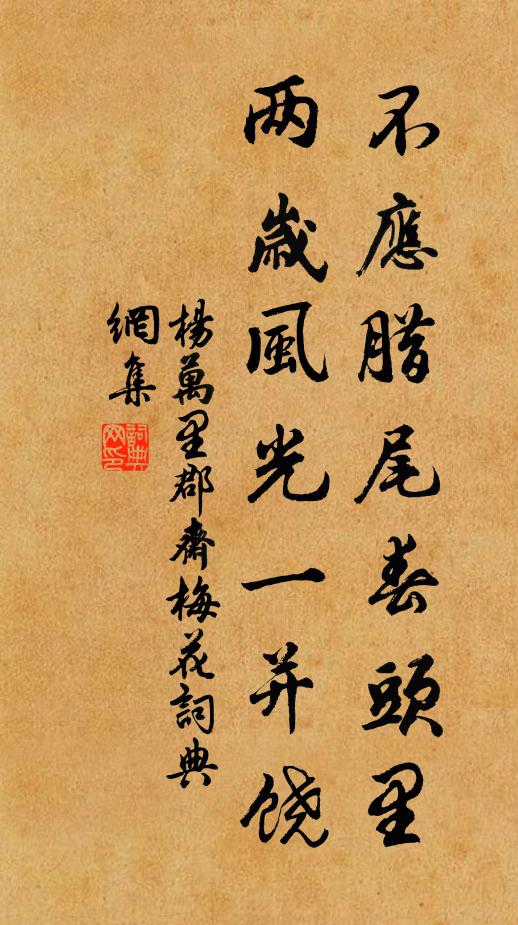 不應腊尾春頭里
两歳風光一并饶
楊萬里郡齋梅花詞典
網集
詞典
网印